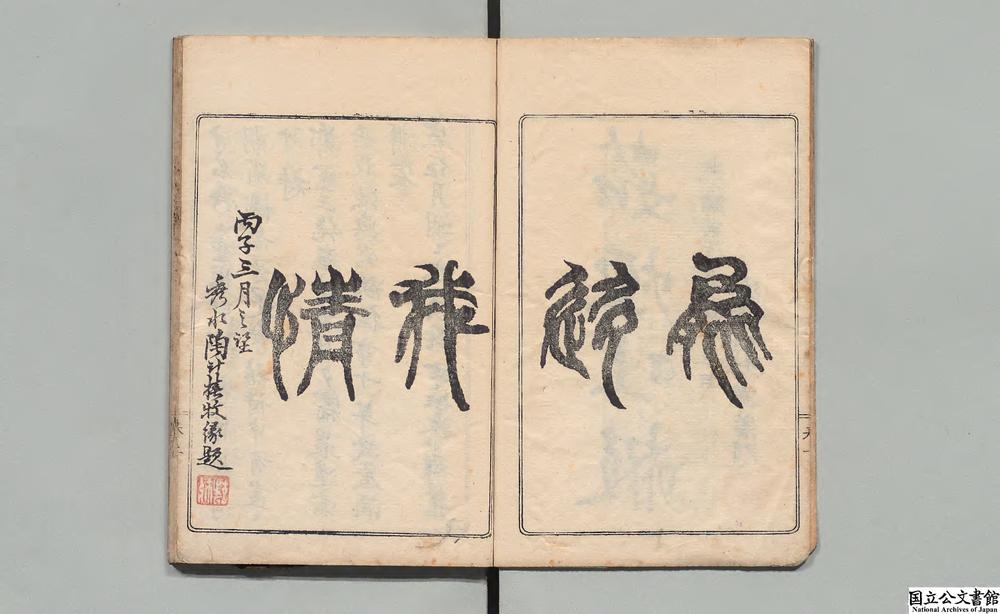 為迻我情
丙子三月之望
秀水陶計椿牧緣題
国立公文書館
National Archives of Japan